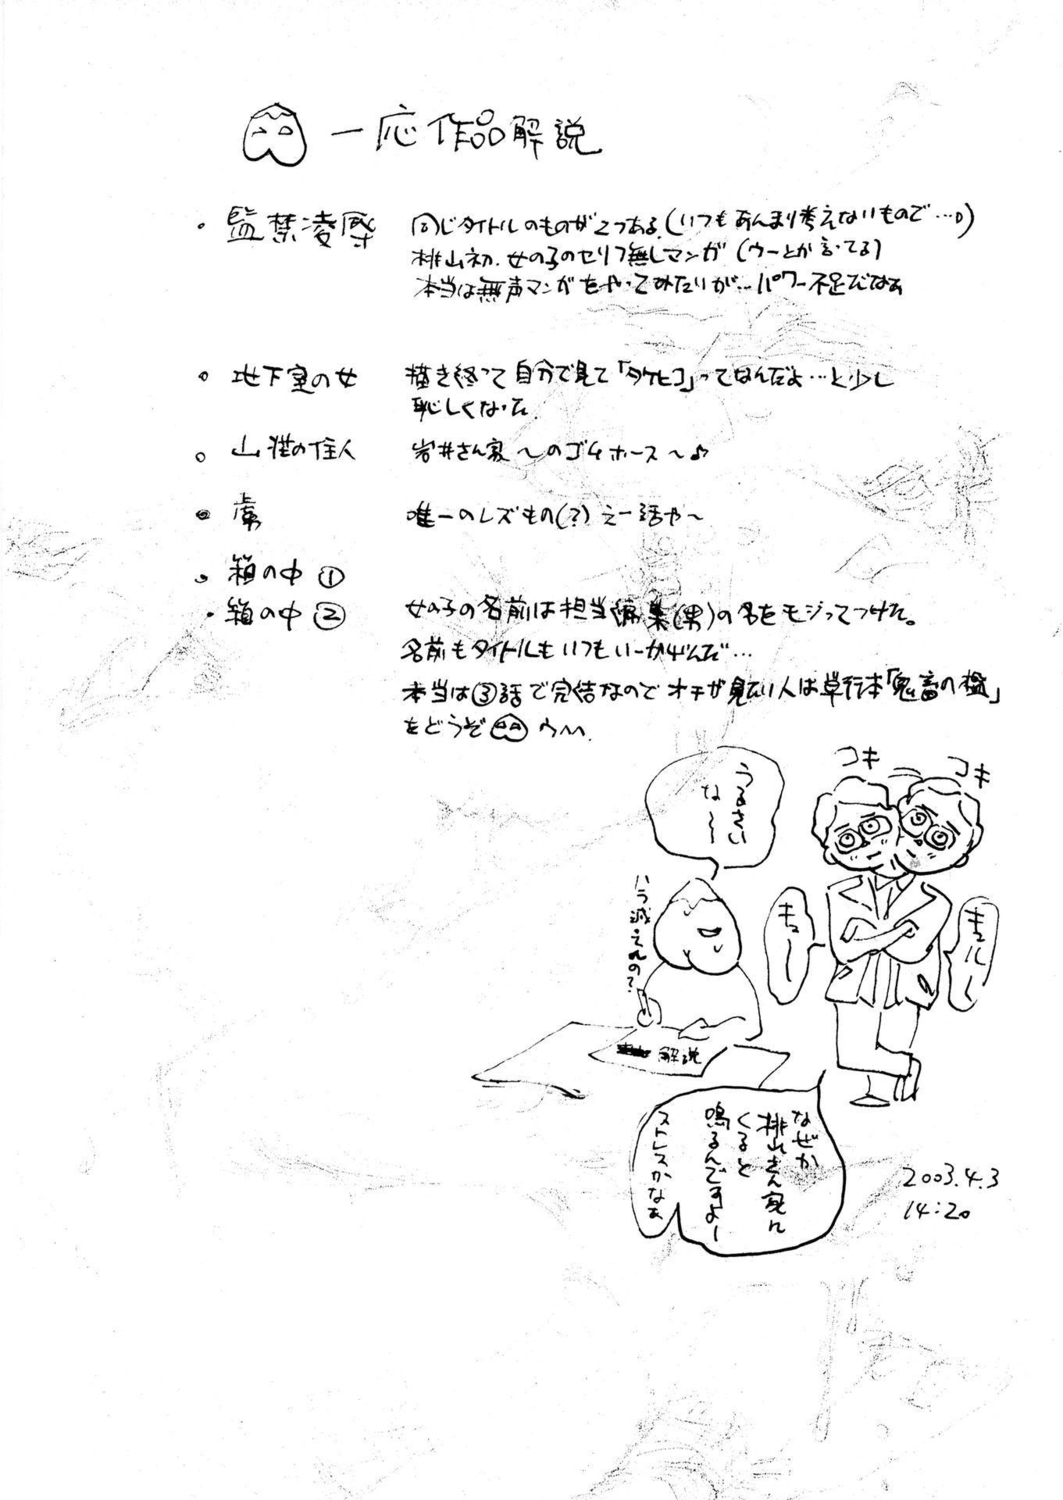 一応作品解説
・監禁凌辱
同じタイトルのものが2つある。(いつもあんまり考えないもので…)
桃山初、女の子のセリフ無しマンガ(ウーとか言ってる)
本当は無声マンガをやってみたいが…パワー不足だなぁ
・地下室の女
描き終って自分で見て「タケヒコ」ってなんだよ…と少し
恥しくなった
・山荘の住人
岩井さん家〜のゴムホース〜♪
・虜
唯一のレズもの(?)えー話や〜
・箱の中①
・箱の中②
女の子の名前は担当編集(男)の名をモジってつけた。
名前もタイトルもいつもいーかげんだ…
本当は③話で完結なのでオチが見たい人は単行本「鬼畜の檻」
をどうぞ
コキ
コキ
うるさい
な〜〜
ハラ減ってんの?
キュー
キュルル
解説
なぜか
桃山さん家に
くると
鳴るんですよー
ストレスかなぁ
2003.4.3
14:20